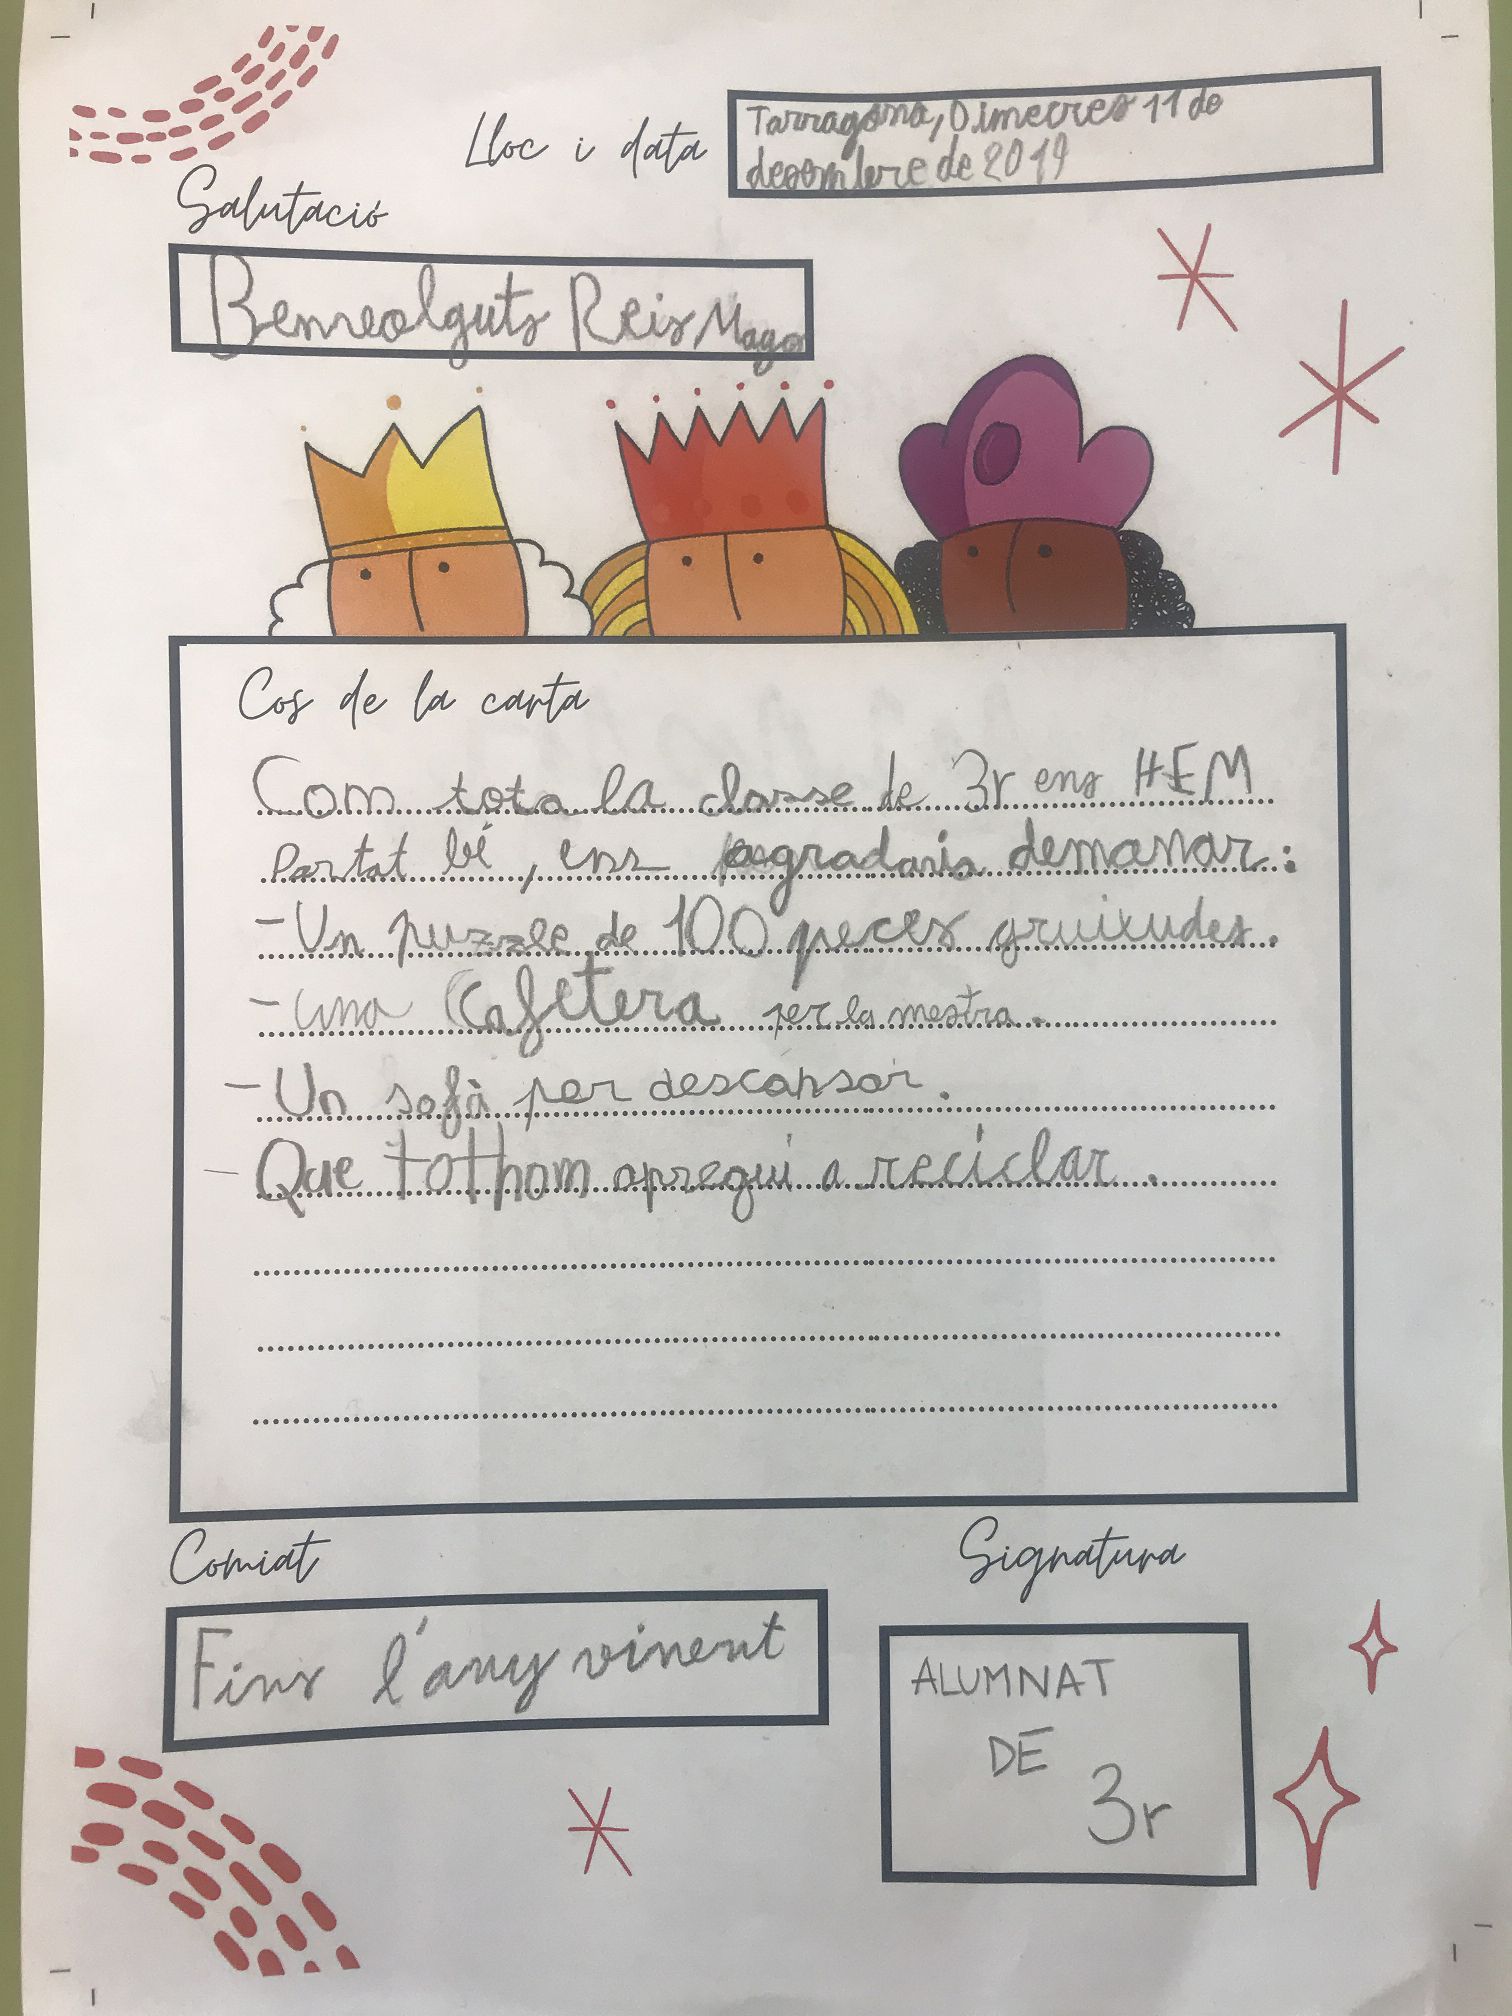 Lloc i data
Tarragona, Dimecres 11 de
desembre de 2019
Salutació
Benvolguts Reis Mags
Cos de la carta
Com tota la classe de 3r ens HEM
Portat bé, ens agradaria demanar:
- Un puzzle de 100 peces gruixudes.
- una Cafetera per la mestra.
- Un sofà per descansar.
- Que tothom apregui a reciclar.
Comiat
Fins l'any vinent
Signatura
ALUMNAT
DE
3r